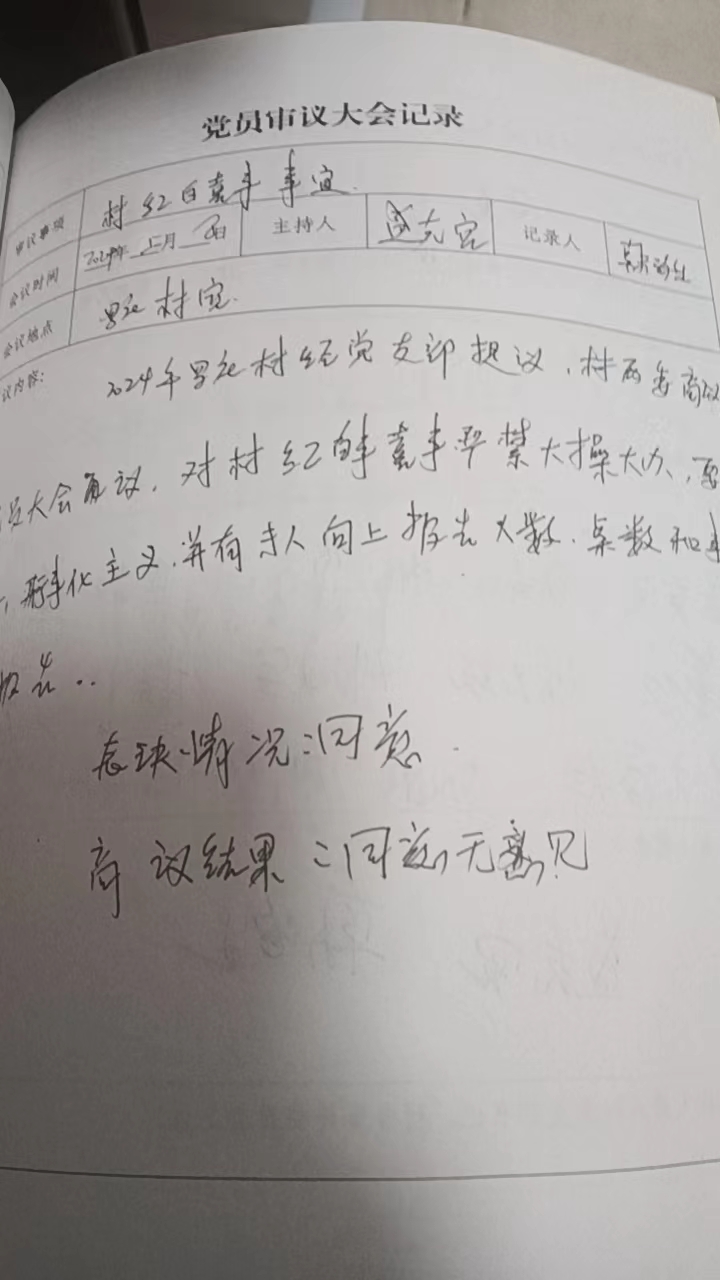 党员审议大会记录
审议事项 村红白喜事事宜
会议时间 2024年 月 日 主持人 记录人
会议地点 村室.
议内容: 2024年 村经党支部提议,村两委商议
员大会审议,对村红白事喜事严禁大操大办、
主义,并有 人向上报告人数、桌数和
报告..
表决情况:同意.
商议结果:同意,无意见